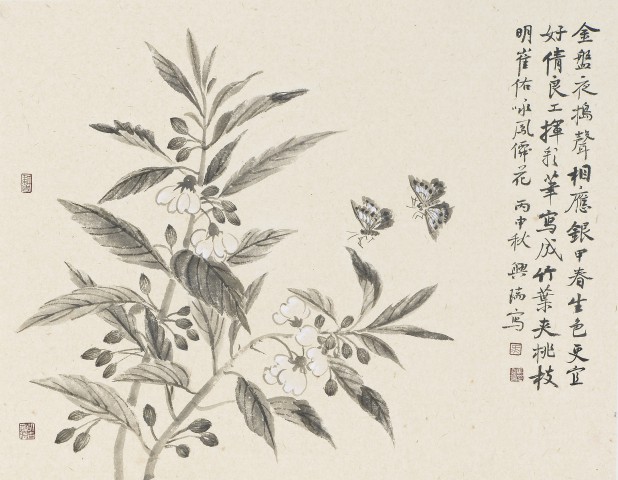 金盤夜搗聲相應銀甲春生色更宜
好倩良工揮彩筆寫成竹葉夾桃枝
明崔佑咏鳳僊花 丙申秋 興瑞寫